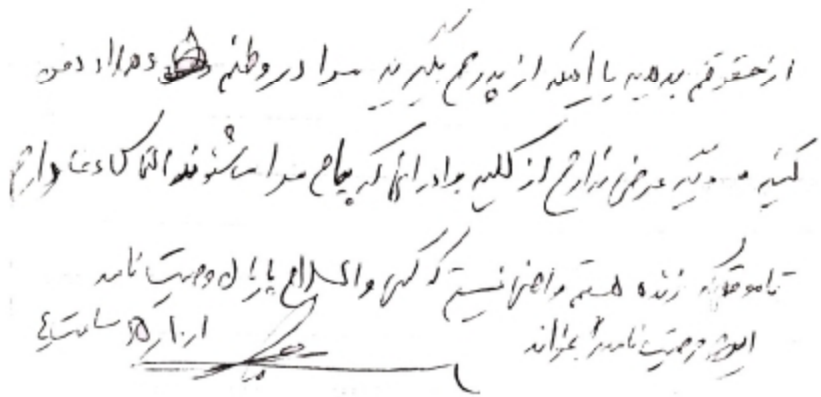 از حقوقم بدهید یا اینکه از پدرم بگیرید مرا در وطنم دفن
کنید دیگر عرضی ندارم از کلیه برادرانی که پیام مرا میشنوند التماس دعا دارم
تا موقعیکه زنده هستم راضی نیستم که کسی والسلام پایان وصیت نامه
این وصیت نامه را بخواند ساعت ٤